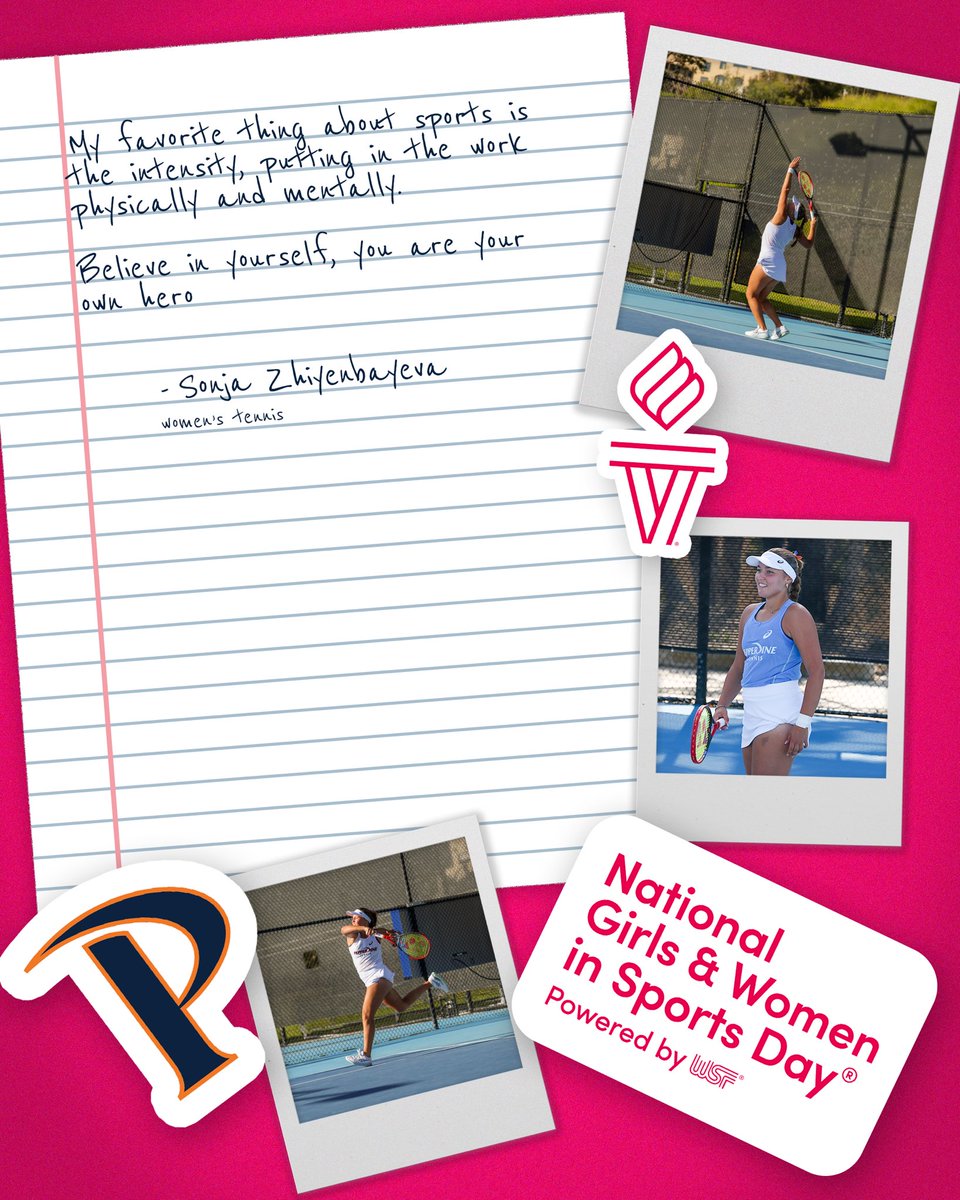 My favorite thing about sports is
the intensity, putting in the work
physically and mentally.
Believe in yourself, you are your
own hero
- Sonja Zhiyenbayeva
women's tennis
TENNIS
P
National
Girls & Women
in Sports Day®
Powered by WSF®